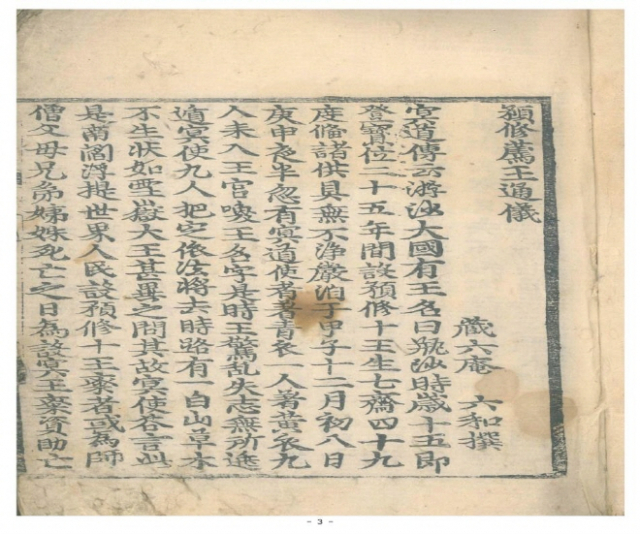 預修薦王通儀
藏六庵 六和撰
冥道傳云游沙大國有王名曰甁沙時歲十五即
登寶位二十五年間設預修十王生七齋四十九
度備諸供具無不淨嚴泊于甲子十二月初八日
庚申夜半忽有冥道使者着青衣一人著黃衣九
人來入王宮喚王名字是時王驚乱失志無所
冥使九人把定依法將去時路有一白山草木
不生狀如雪嶽大王甚異之問其故冥使答言此
是南閻浮提世界人民設預修十王齋者或為師
僧父母兄弟姊妹死亡之日為設冥王齋資助亡
- 3 -